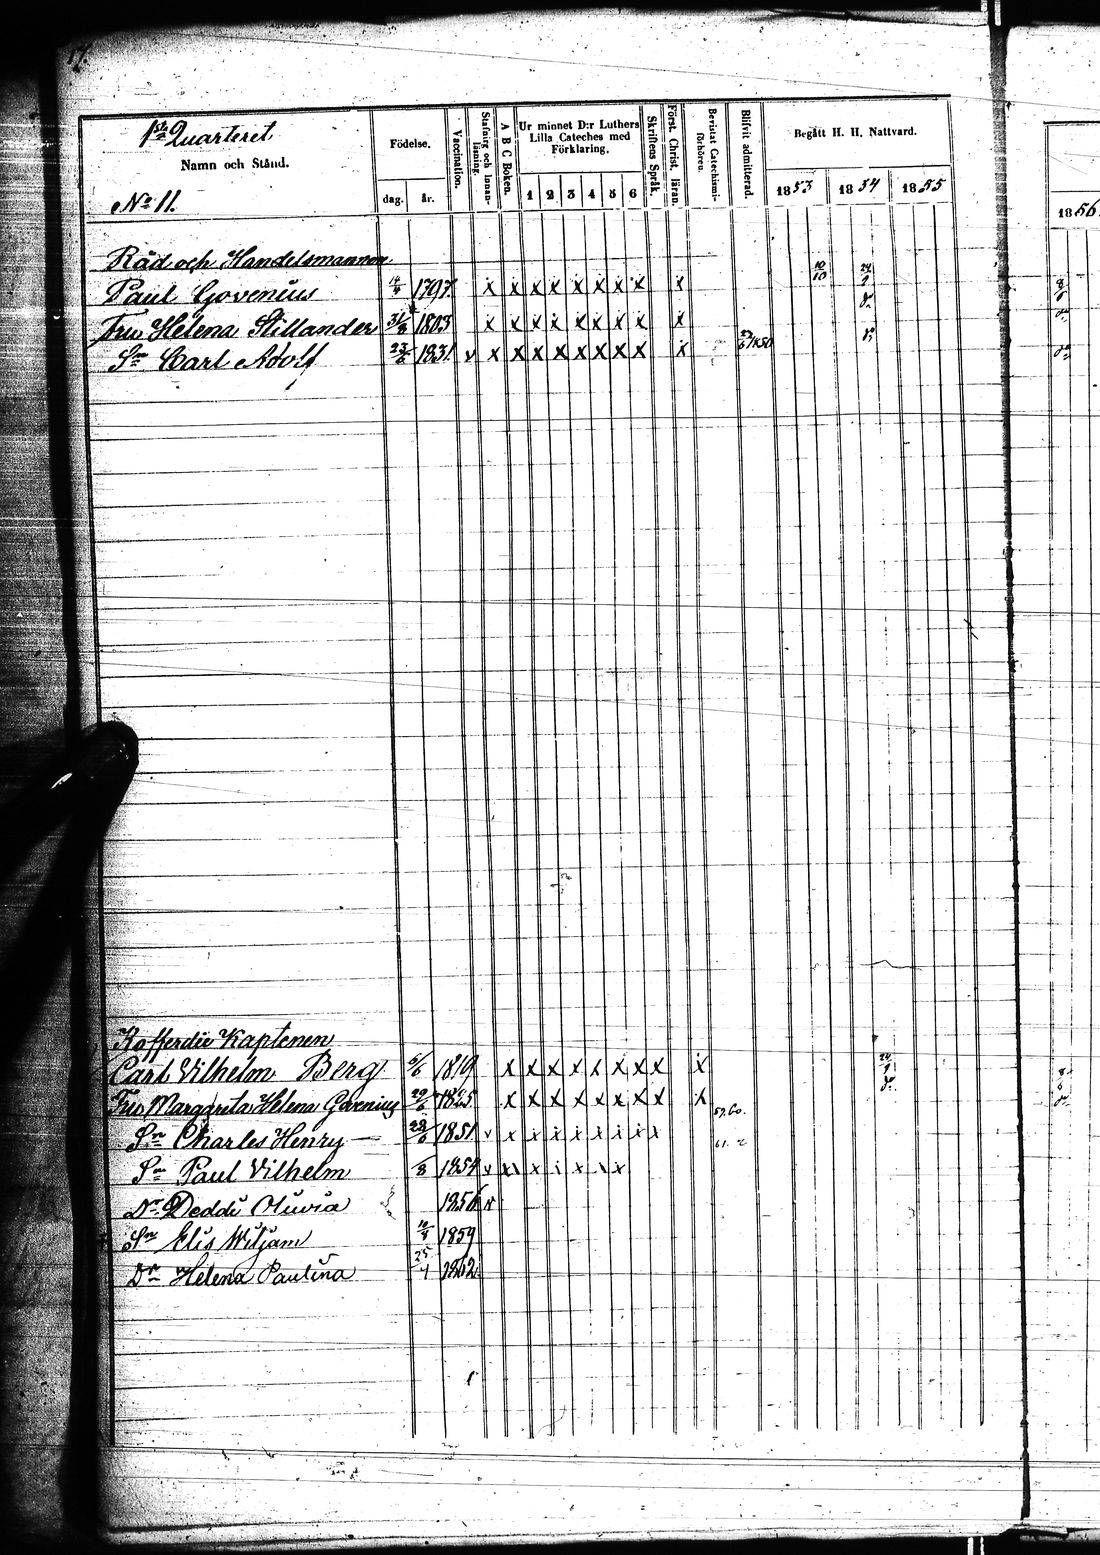 17.
1sta Quarteret
Namn och Stånd.
No 11.
Födelse.
dag. år.
Vaccination.
Stafning och Innanläsning.
A B C Boken.
Ur minnet D:r Luthers Lilla Cateches med Förklaring.
1 2 3 4 5 6
Skriftens Språk.
Först. Christ. läran.
Bevistat Catechismiförhören.
Blifvit admitterad.
Begått H. H. Nattvard.
1853 1854 1855
1856
Råd och Handelsmannen
Paul Govenius 1797 x x x x x x x x x 10/10
Fru Helena Stillander 31/8 1803 x x x x x x x x x
Sn Carl Adolf 23/6 1831 v x x x x x x x x x
Kofferdie Kaptenen
Carl Vilhelm Berg 5/6 1819 x x x x x x x x x
Fru Margareta Helena Govenius 29/6 1825 x x x x x x x x x
Sn Charles Henry 28/6 1851 v x x x x x x x x 59. 60.
Sn Paul Vilhelm 1854 v
Dr Deddi Olivia 1856
Sn Elis Wiljam 1859
Dr Helena Paulina 25/4 1862